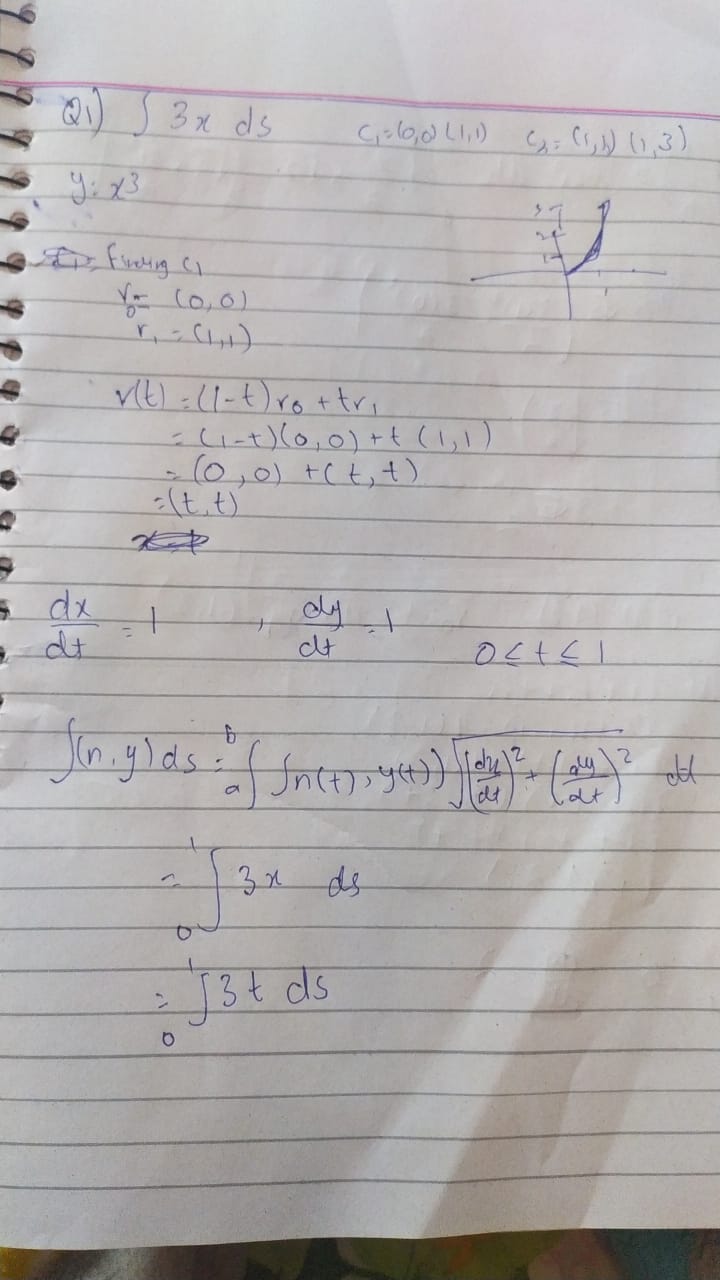 Q1) ∫ 3x ds C₁=(0,0) (1,1) C₂= (1,1) (1,3)
y: x³
3
2
1
1
Finding C₁
r₀= (0,0)
r₁ = (1,1)
r(t) = (1-t) r₀ + tr₁
= (1-t)(0,0) + t (1,1)
= (0,0) + (t,t)
= (t,t)
dx/dt = 1 , dy/dt = 1 0 ≤ t ≤ 1
∫(n,y) ds = ₐ∫ᵇ ∫n(t), y(t)) √((dx/dt)² + (dy/dt)²) dt
= ₀∫¹ 3x ds
= ₀∫¹ 3t ds